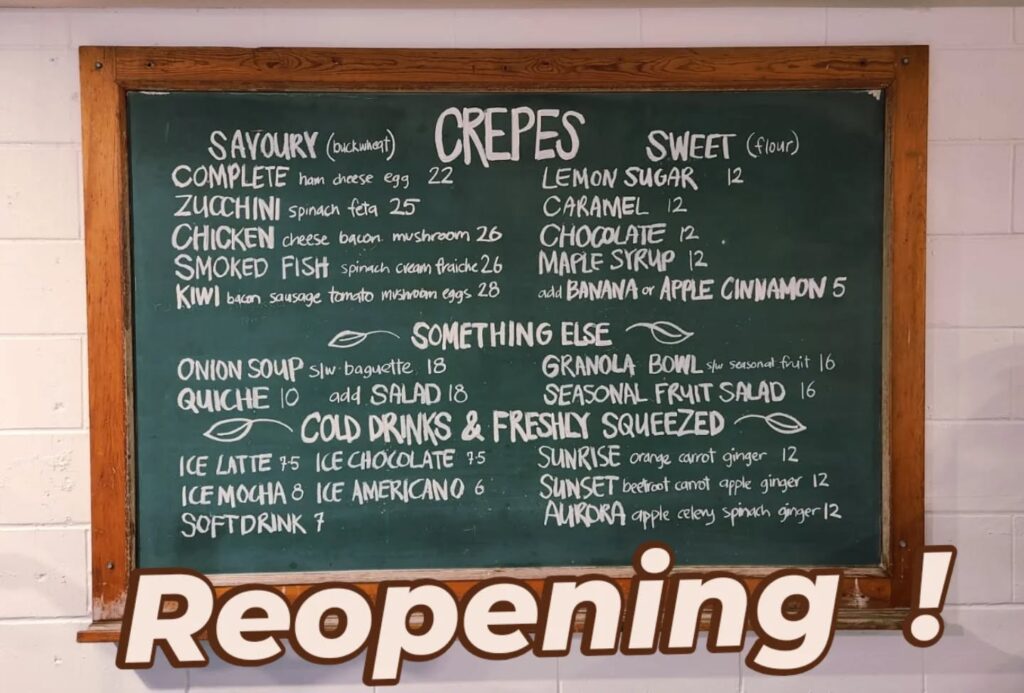 CREPES
SAVOURY (buckwheat)
COMPLETE ham cheese egg 22
ZUCCHINI spinach feta 25
CHICKEN cheese bacon mushroom 26
SMOKED FISH spinach cream fraiche 26
KIWI bacon sausage tomato mushroom eggs 28
SWEET (flour)
LEMON SUGAR 12
CARAMEL 12
CHOCOLATE 12
MAPLE SYRUP 12
add BANANA or APPLE CINNAMON 5
SOMETHING ELSE
ONION SOUP s/w baguette 18
QUICHE 10 add SALAD 18
GRANOLA BOWL s/w seasonal fruit 16
SEASONAL FRUIT SALAD 16
COLD DRINKS & FRESHLY SQUEEZED
ICE LATTE 7.5 ICE CHOCOLATE 7.5
ICE MOCHA 8 ICE AMERICANO 6
SOFT DRINK 7
SUNRISE orange carrot ginger 12
SUNSET beetroot carrot apple ginger 12
AURORA apple celery spinach ginger 12
Reopening !